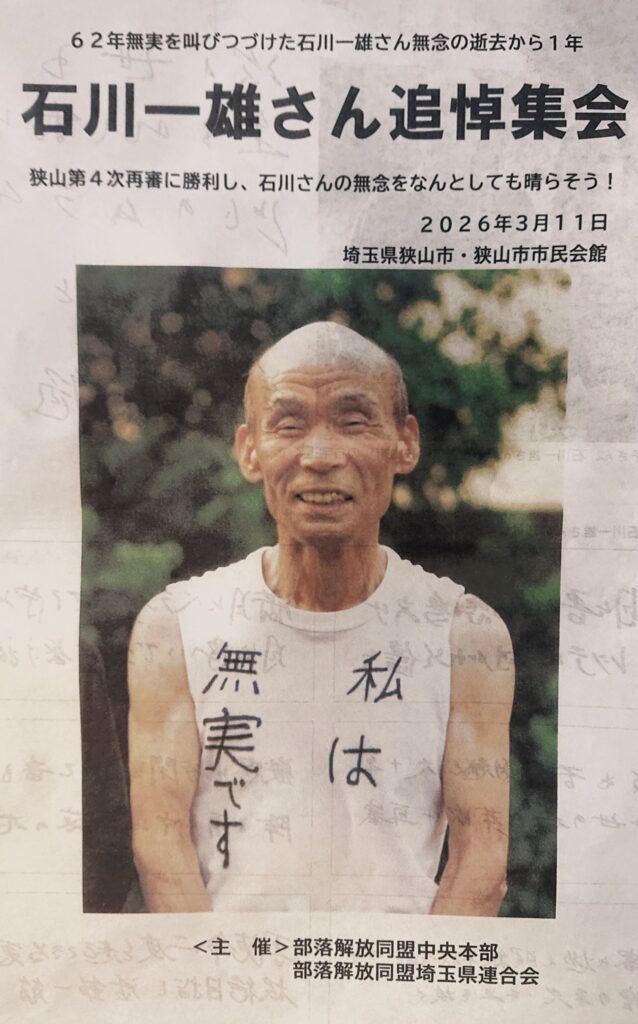 ６２年無実を叫びつづけた石川一雄さん無念の逝去から１年
石川一雄さん追悼集会
狭山第４次再審に勝利し、石川さんの無念をなんとしても晴らそう！
２０２６年３月１１日
埼玉県狭山市・狭山市市民会館
私は
無実です
＜主　催＞部落解放同盟中央本部
部落解放同盟埼玉県連合会